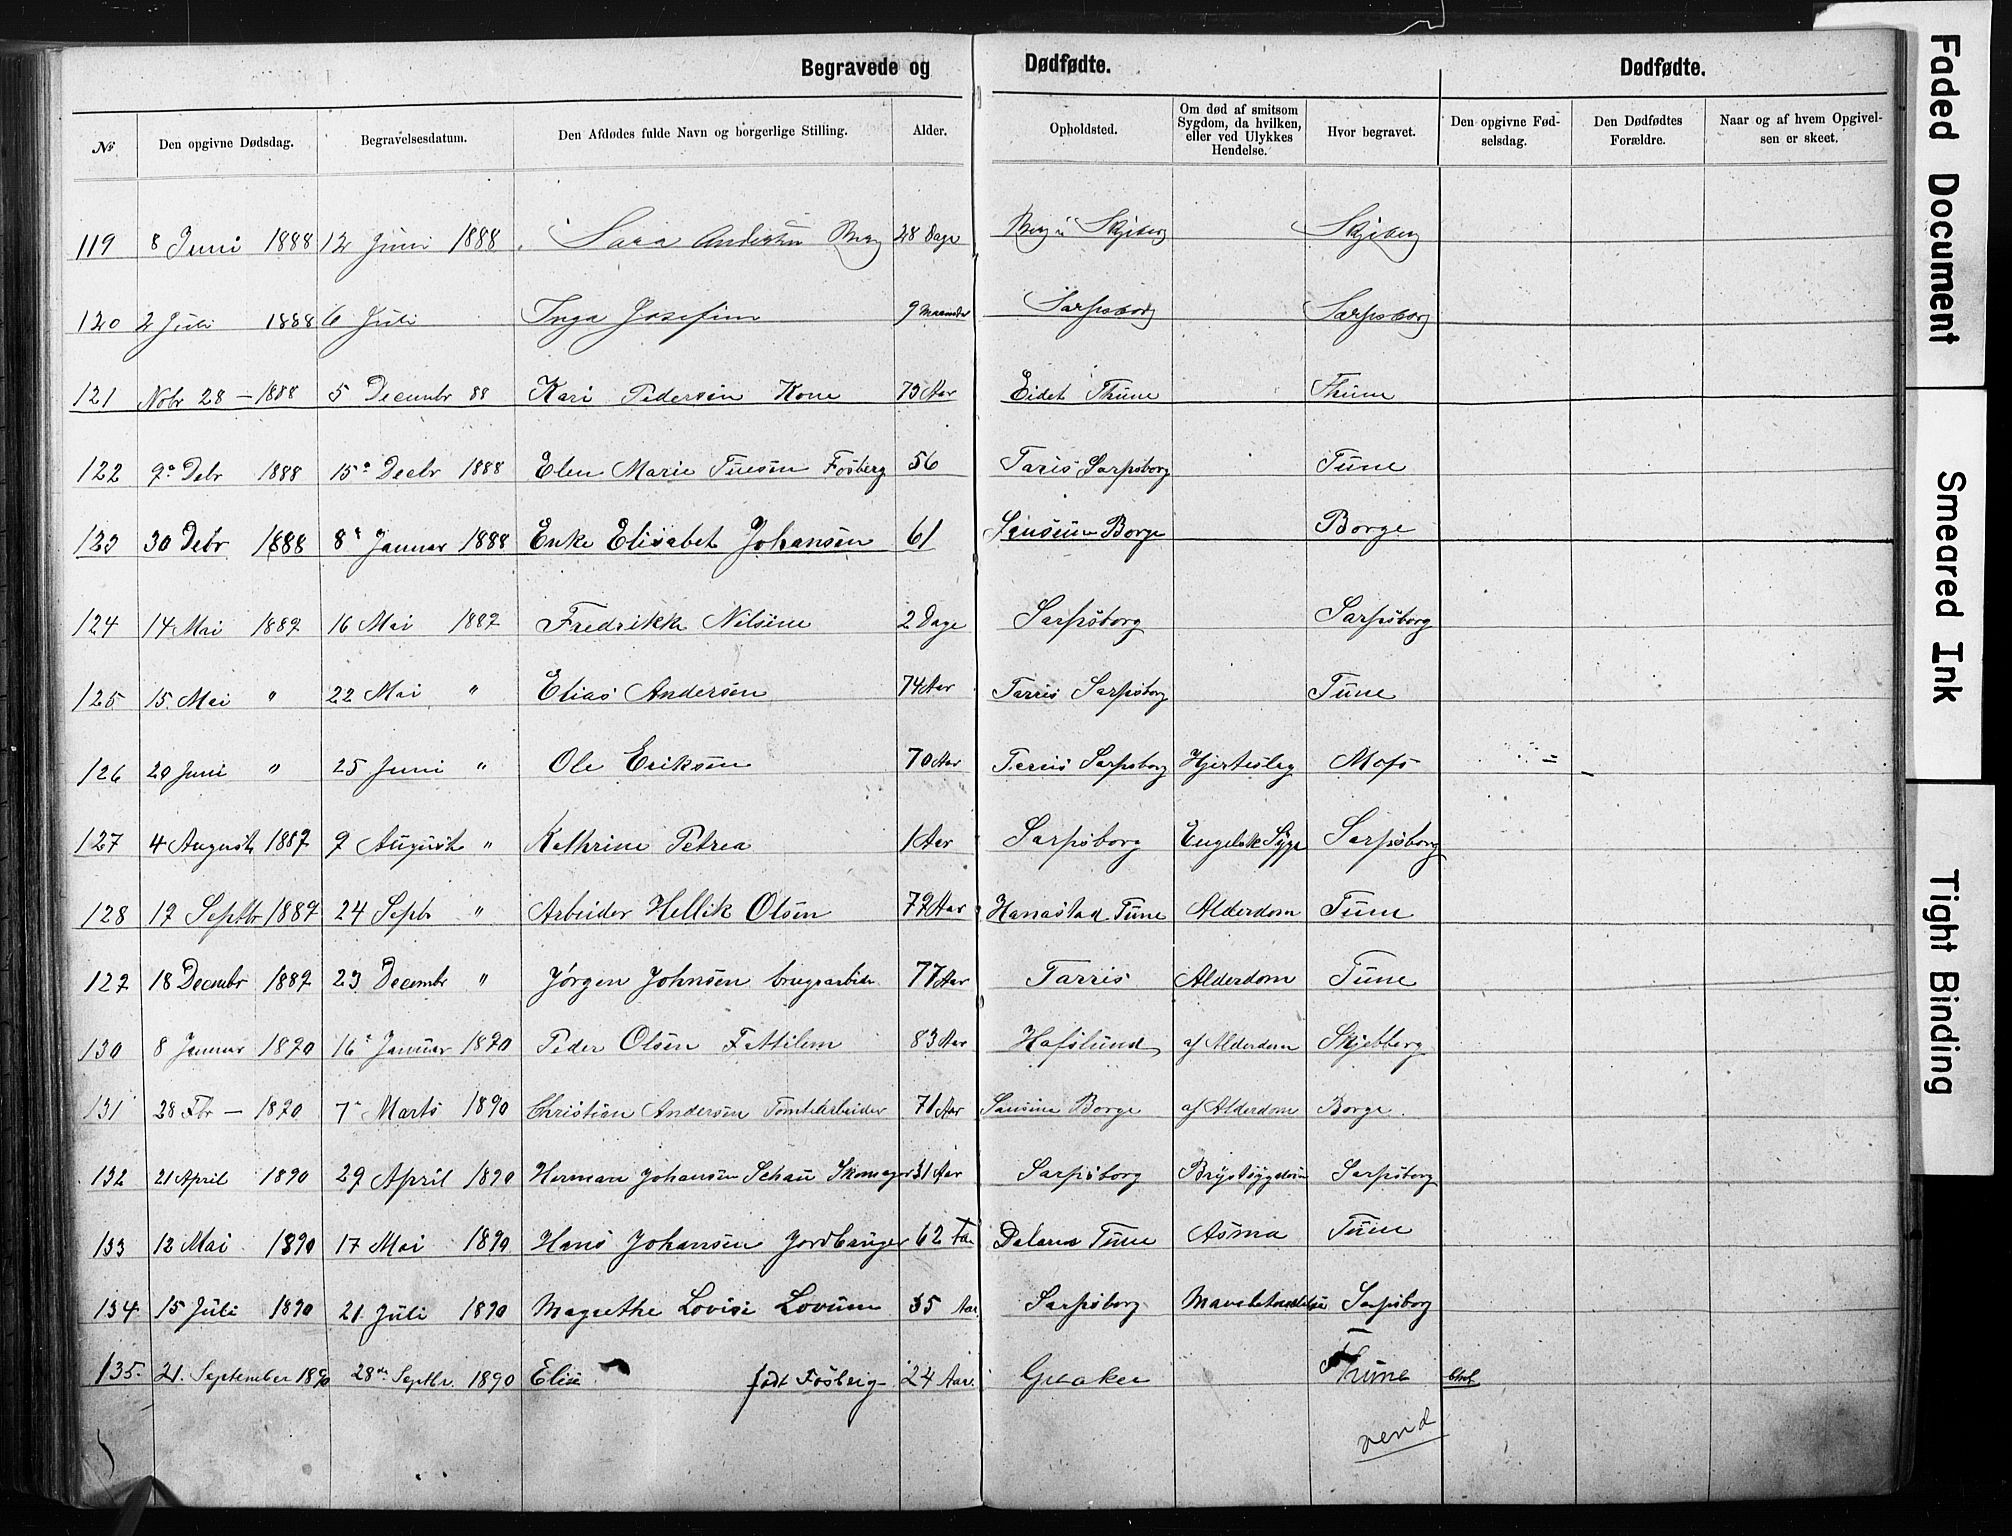 Begravede og Dødfødte. Dødfødte.
№ Den opgivne Dødsdag. Begravelsesdatum. Den Afdødes fulde Navn og borgerlige Stilling. Alder. Opholdsted. Om død af smitsom Sygdom, da hvilken, eller ved Ulykkes Hendelse. Hvor begravet. Den opgivne Fødselsdag. Den Dødfødtes Forældre. Naar og af hvem Opgivelsen er skeet.
119 8 Juni 1888 12 Juni 1888 Sara Andersen Berg 28 Dage Berg i Skjeberg Skjeberg
120 2 Juli 1888 6 Juli Inga Josefine 9 Maaneder Sarpsborg Sarpsborg
121 Nobr 28 – 1888 5 Decembr 88 Kari Pedersen Kone 75 Aar Eidet Thune Thune
122 9 Debr 1888 15 Decbr 1888 Elen Marie Fosberg 56 Taris Sarpsborg Tune
123 30 Debr 1888 8 Januar 1888 Enke Elisabet Johansen 61 Borge Borge
124 14 Mai 1889 16 Mai 1889 Fredrikke Nilsine 2 Dage Sarpsborg Sarpsborg
125 15. Mai " 22 Mai " Elias Andersen 74 Aar Tarris Sarpsborg Tune
126 20 Juni " 25 Juni " Ole Eriksen 70 Aar Sarpsborg Hjerteslag Moss
127 4 August 1889 9 August " Kathrine Petrea 1 Aar Sarpsborg Engelsk Syge Sarpsborg
128 19 Septbr 1889 24 Sepbr " Arbeider Hellik Olsen 79 Aar Hanastad Tune Alderdom Tune
129 18 Decembr 1889 23 Decembr " Jørgen Johnsen brugsarbeider 77 Aar Tarris Alderdom Tune
130 8 Januar 1890 16 Januar 1890 Peder Olsen 83 Aar Hafslund af Alderdom Skjebberg
131 28 Fbr – 1890 7 Marts 1890 Christian Andersen Tomtearbeider 71 Aar Borge af Alderdom Borge.
132 21 April 1890 29 April 1890 Herman Johansen Schau Skomager 31 Aar Sarpsborg Brystsygdom Sarpsborg
133 12 Mai 1890 17 Mai 1890 Hans Johansen Jordbruger 62 Tune Asma Tune
134 15 Juli 1890 21. Juli 1890 Magrethe Lovise 35 Aar Sarpsborg Sarpsborg
135. 21. September 1890 28de Septbr. 1890 Elise født Fosberg 24 Aar. Greaker Thune
vend
Faded Document
Smeared Ink
Tight Binding